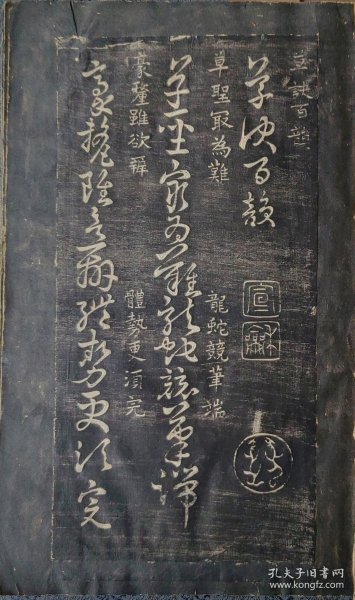 草訣百韻
草訣百韻
宣龢
草聖最為難 龍蛇競筆端
草聖最為難龍蛇競筆端
豪釐雖欲辨 體勢更須完
豪釐雖欲辨體勢更須完
孔夫子旧书网
book.kongfz.com